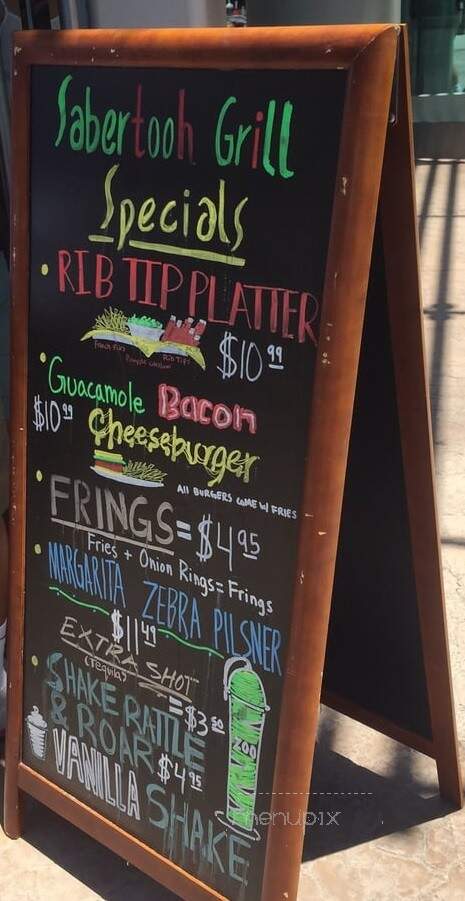 Sabertooh Grill
Specials
RIB TIP PLATTER
French Fries
RIB TIPS
$10 99
Guacamole Bacon
$10 99 Cheeseburger
All BURGERS COME W/ FRIES
FRINGS = $4 95
Fries + Onion Rings = Frings
MARGARITA ZEBRA PILSNER
$11 49
EXTRA SHOT
(Tequila) = $3 50
SHAKE RATTLE
& ROAR $4 95
VANILLA SHAKE
ZOO
menupix